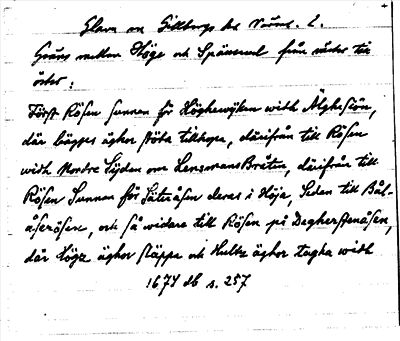 Glava sn Gillbergs hd Värml. l.
Gräns mellan Höge och Spänsmol från väster till
öster:
Först Rösen sunnan för Höghewijken widh Älghsiön,
där bägges äghor stöta tillhopa, därifrån till Rösen
widh Nordre Sijdan om LensmansBråten, därifrån till
Rösen Sunnan för Säteråsen deras i Höje, Seden till Bål-
åserösen, och så widare till Rösen på Dagherstenåsen,
där Högz äghor släppa och Hultz äghor tagha widh
1674 db s. 257